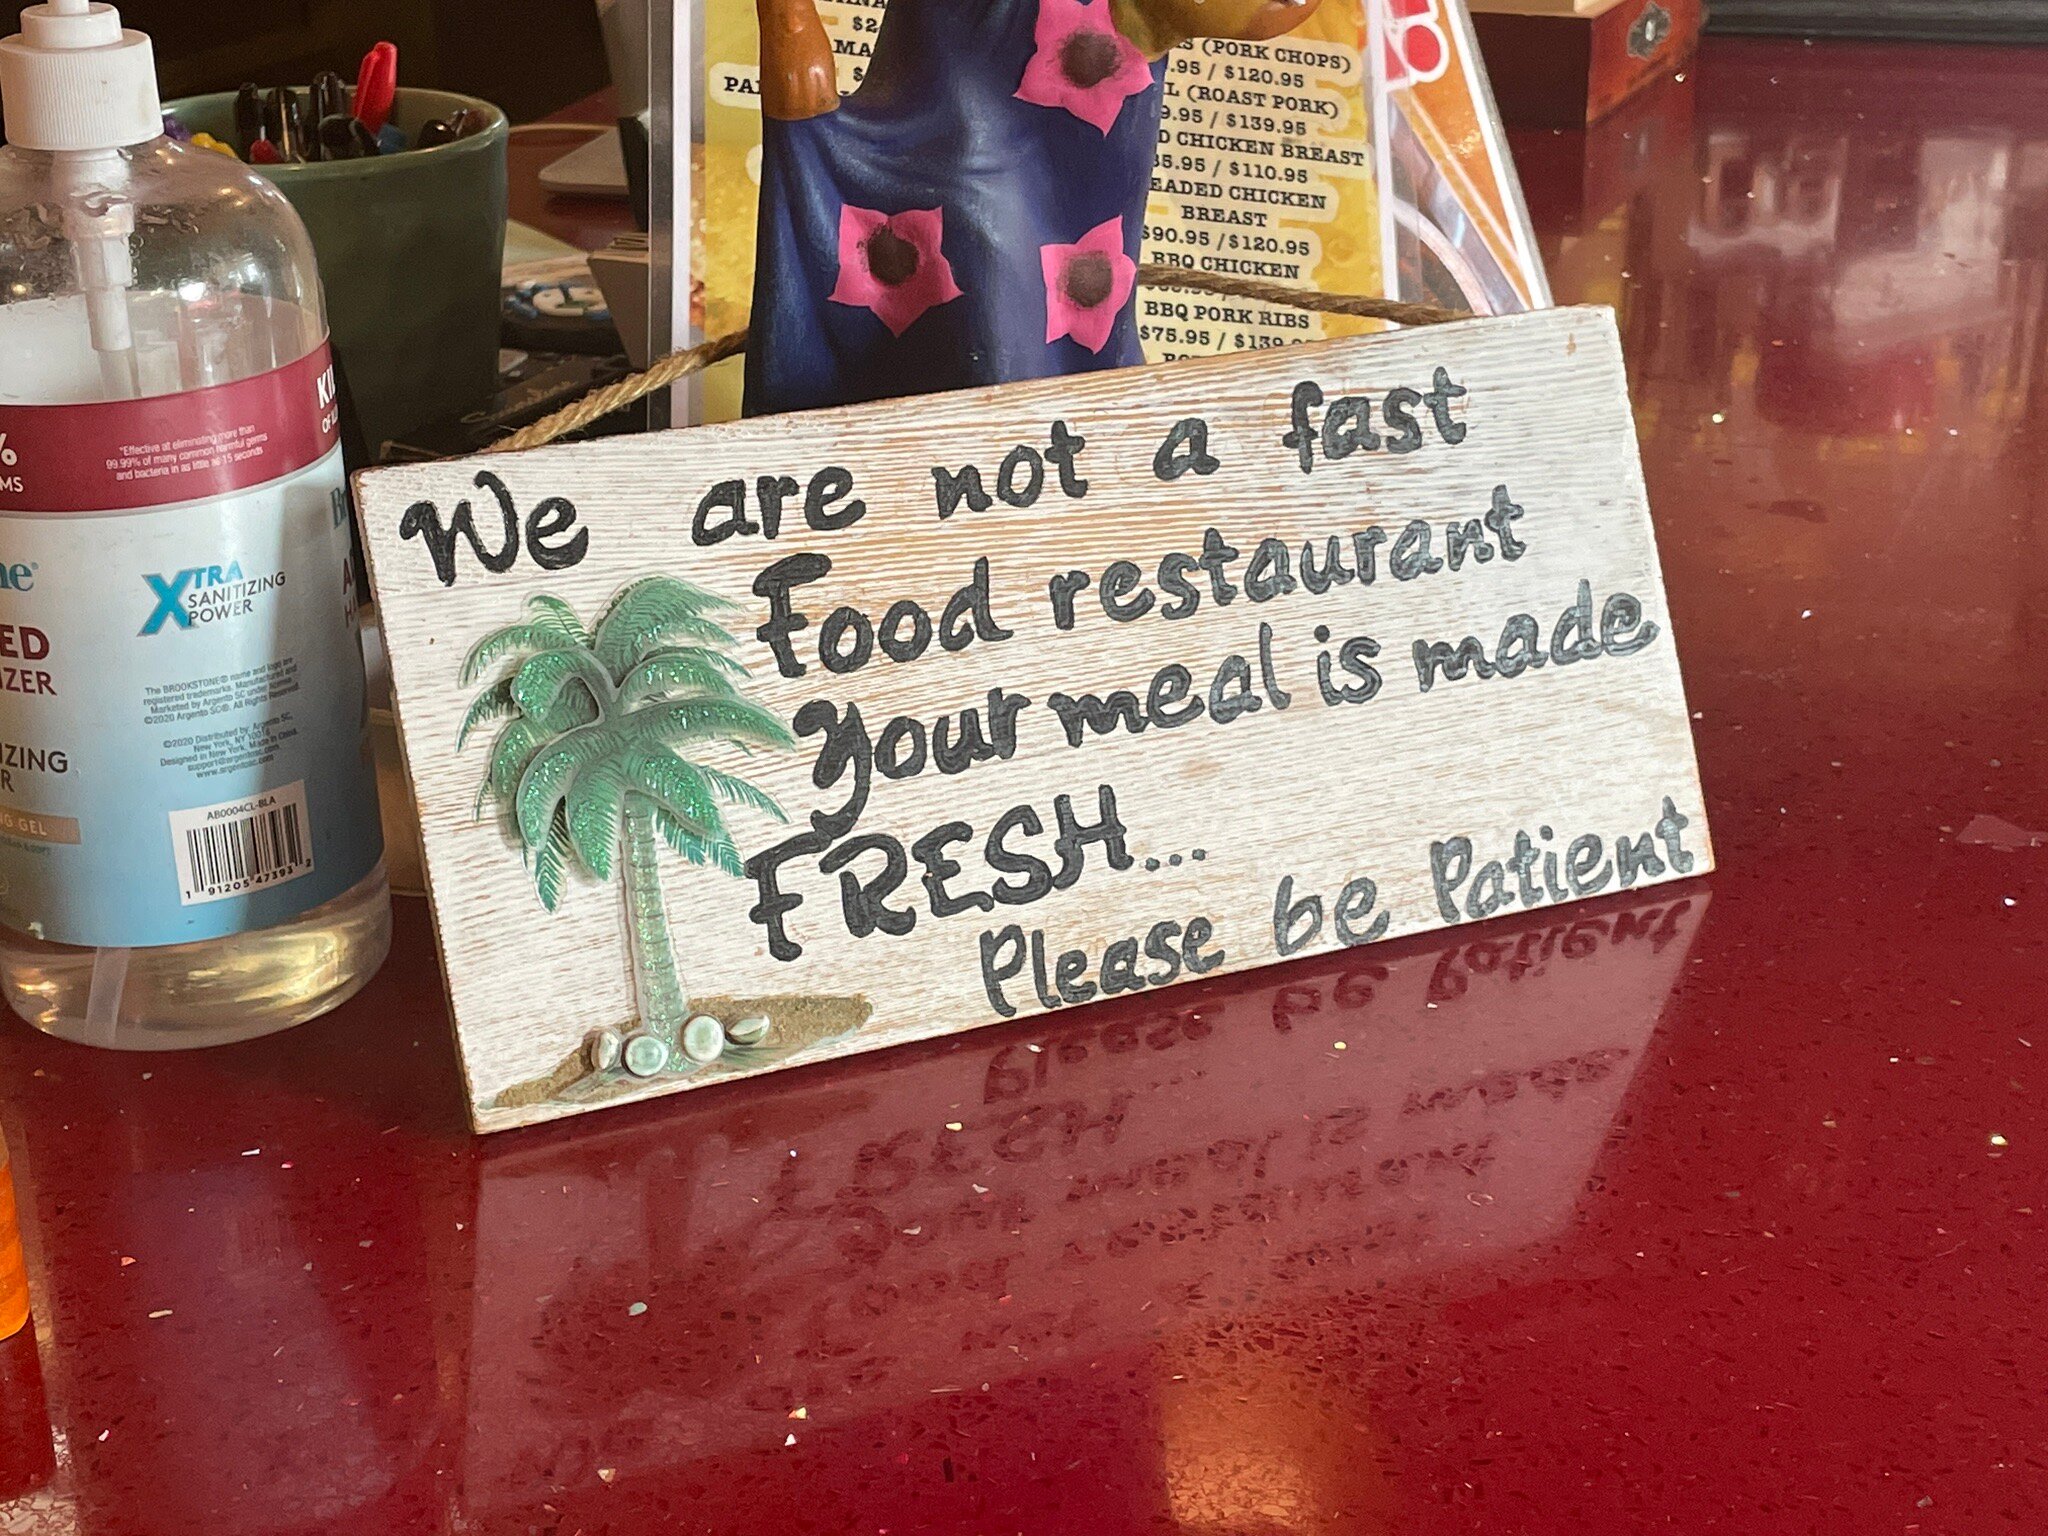 $2
MA
PA
(PORK CHOPS)
.95 / $120.95
L (ROAST PORK)
9.95 / $139.95
D CHICKEN BREAST
85.95 / $110.95
EADED CHICKEN
BREAST
$90.95 / $120.95
BBQ CHICKEN
BBQ PORK RIBS
$75.95 / $139
We are not a fast
Food restaurant
Your meal is made
FRESH...
Please be Patient
*Effective at eliminating more than
99.99% of many common harmful germs
and bacteria in as little as 15 seconds
KI
OF
%
MS
ne®
XTRA
SANITIZING
POWER
ED
IZER
The BROOKSTONE® name and logo are
registered trademarks. Manufactured and
Marketed by Argento SC under license.
©2020 Argento SC®. All Rights Reserved.
©2020 Distributed by: Argento SC,
New York, NY 10016
Designed in New York. Made in China.
support@argentosc.com
www.argentosc.com
IZING
R
G GEL
AB0004CL-BLA
1 91205 47393 2